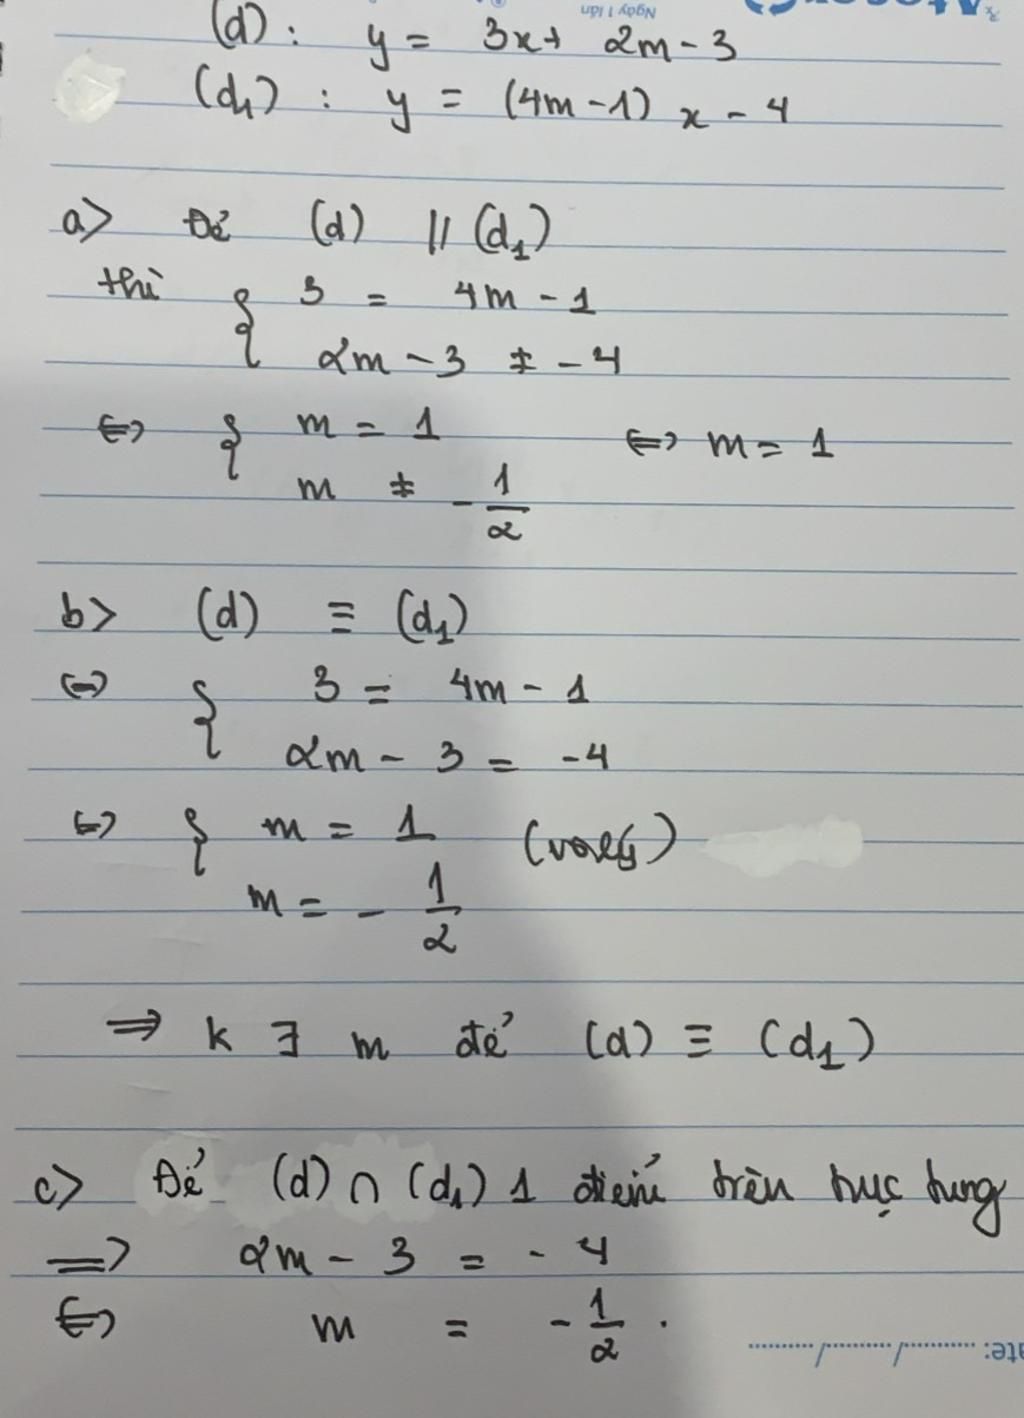 Ngày / lần
(d): y = 3x + 2m - 3
(d1): y = (4m - 1) x - 4
a> Để (d) // (d1)
thì { 3 = 4m - 1
2m - 3 ≠ -4
<=> { m = 1 <=> m = 1
m ≠ - 1/2
b> (d) ≡ (d1)
<=> { 3 = 4m - 1
2m - 3 = -4
<=> { m = 1 (vô lý)
m = - 1/2
=> k ∃ m để (d) ≡ (d1)
c> Để (d) ∩ (d1) 1 điểm trên trục tung
=> 2m - 3 = - 4
<=> m = - 1/2 .